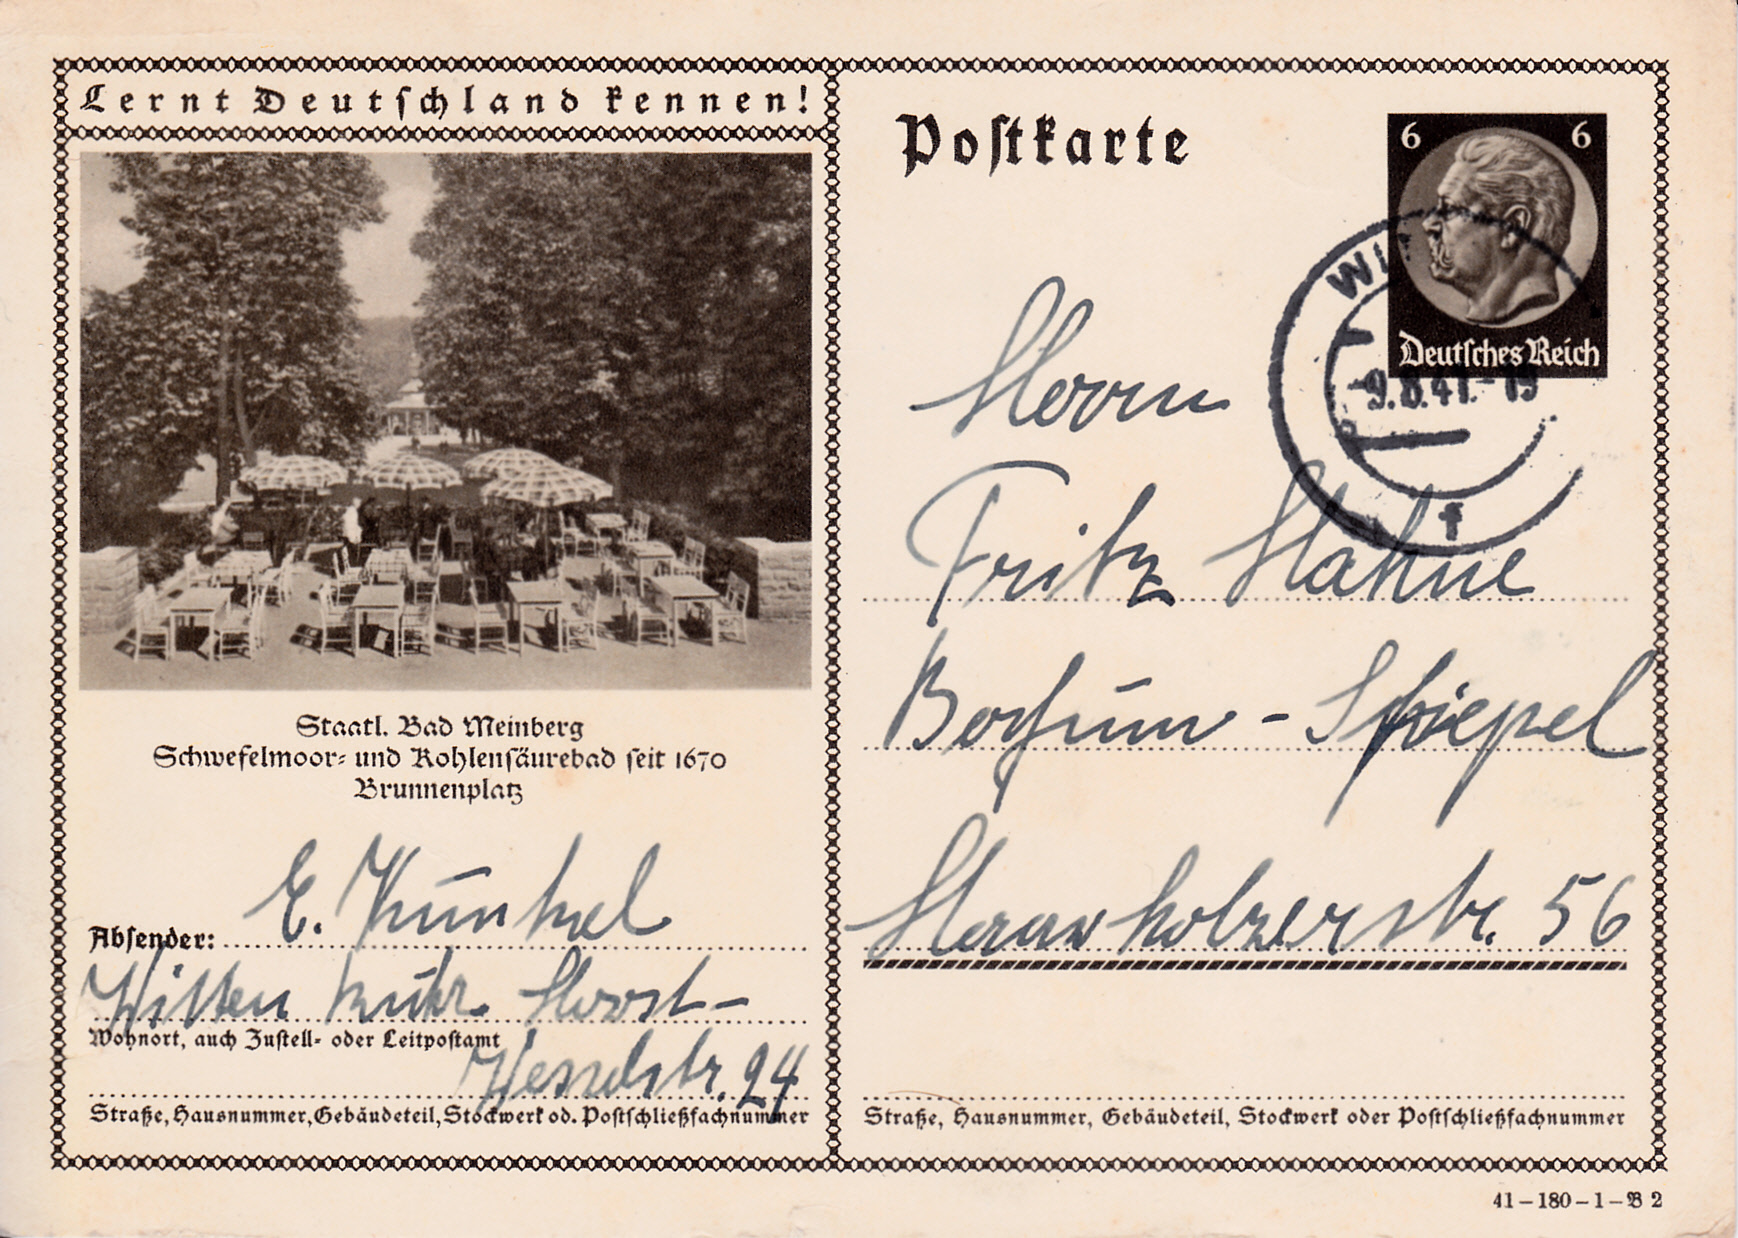 Lernt Deutschland kennen!
Staatl. Bad Meinberg
Schwefelmoor- und Kohlensäurebad seit 1670
Brunnenplatz
Absender: E. Kunkel
Witten Ruhr. Horst-
Wohnort, auch Zustell- oder Leitpostamt
Wesselstr. 24
Straße, Hausnummer, Gebäudeteil, Stockwerk od. Postschließfachnummer
Postkarte
6 6
Deutsches Reich
WI
-9.8.41.-19
f
Herrn
Fritz Hahne
Bochum - Stiepel
56
Straße, Hausnummer, Gebäudeteil, Stockwerk oder Postschließfachnummer
41-180-1-B 2